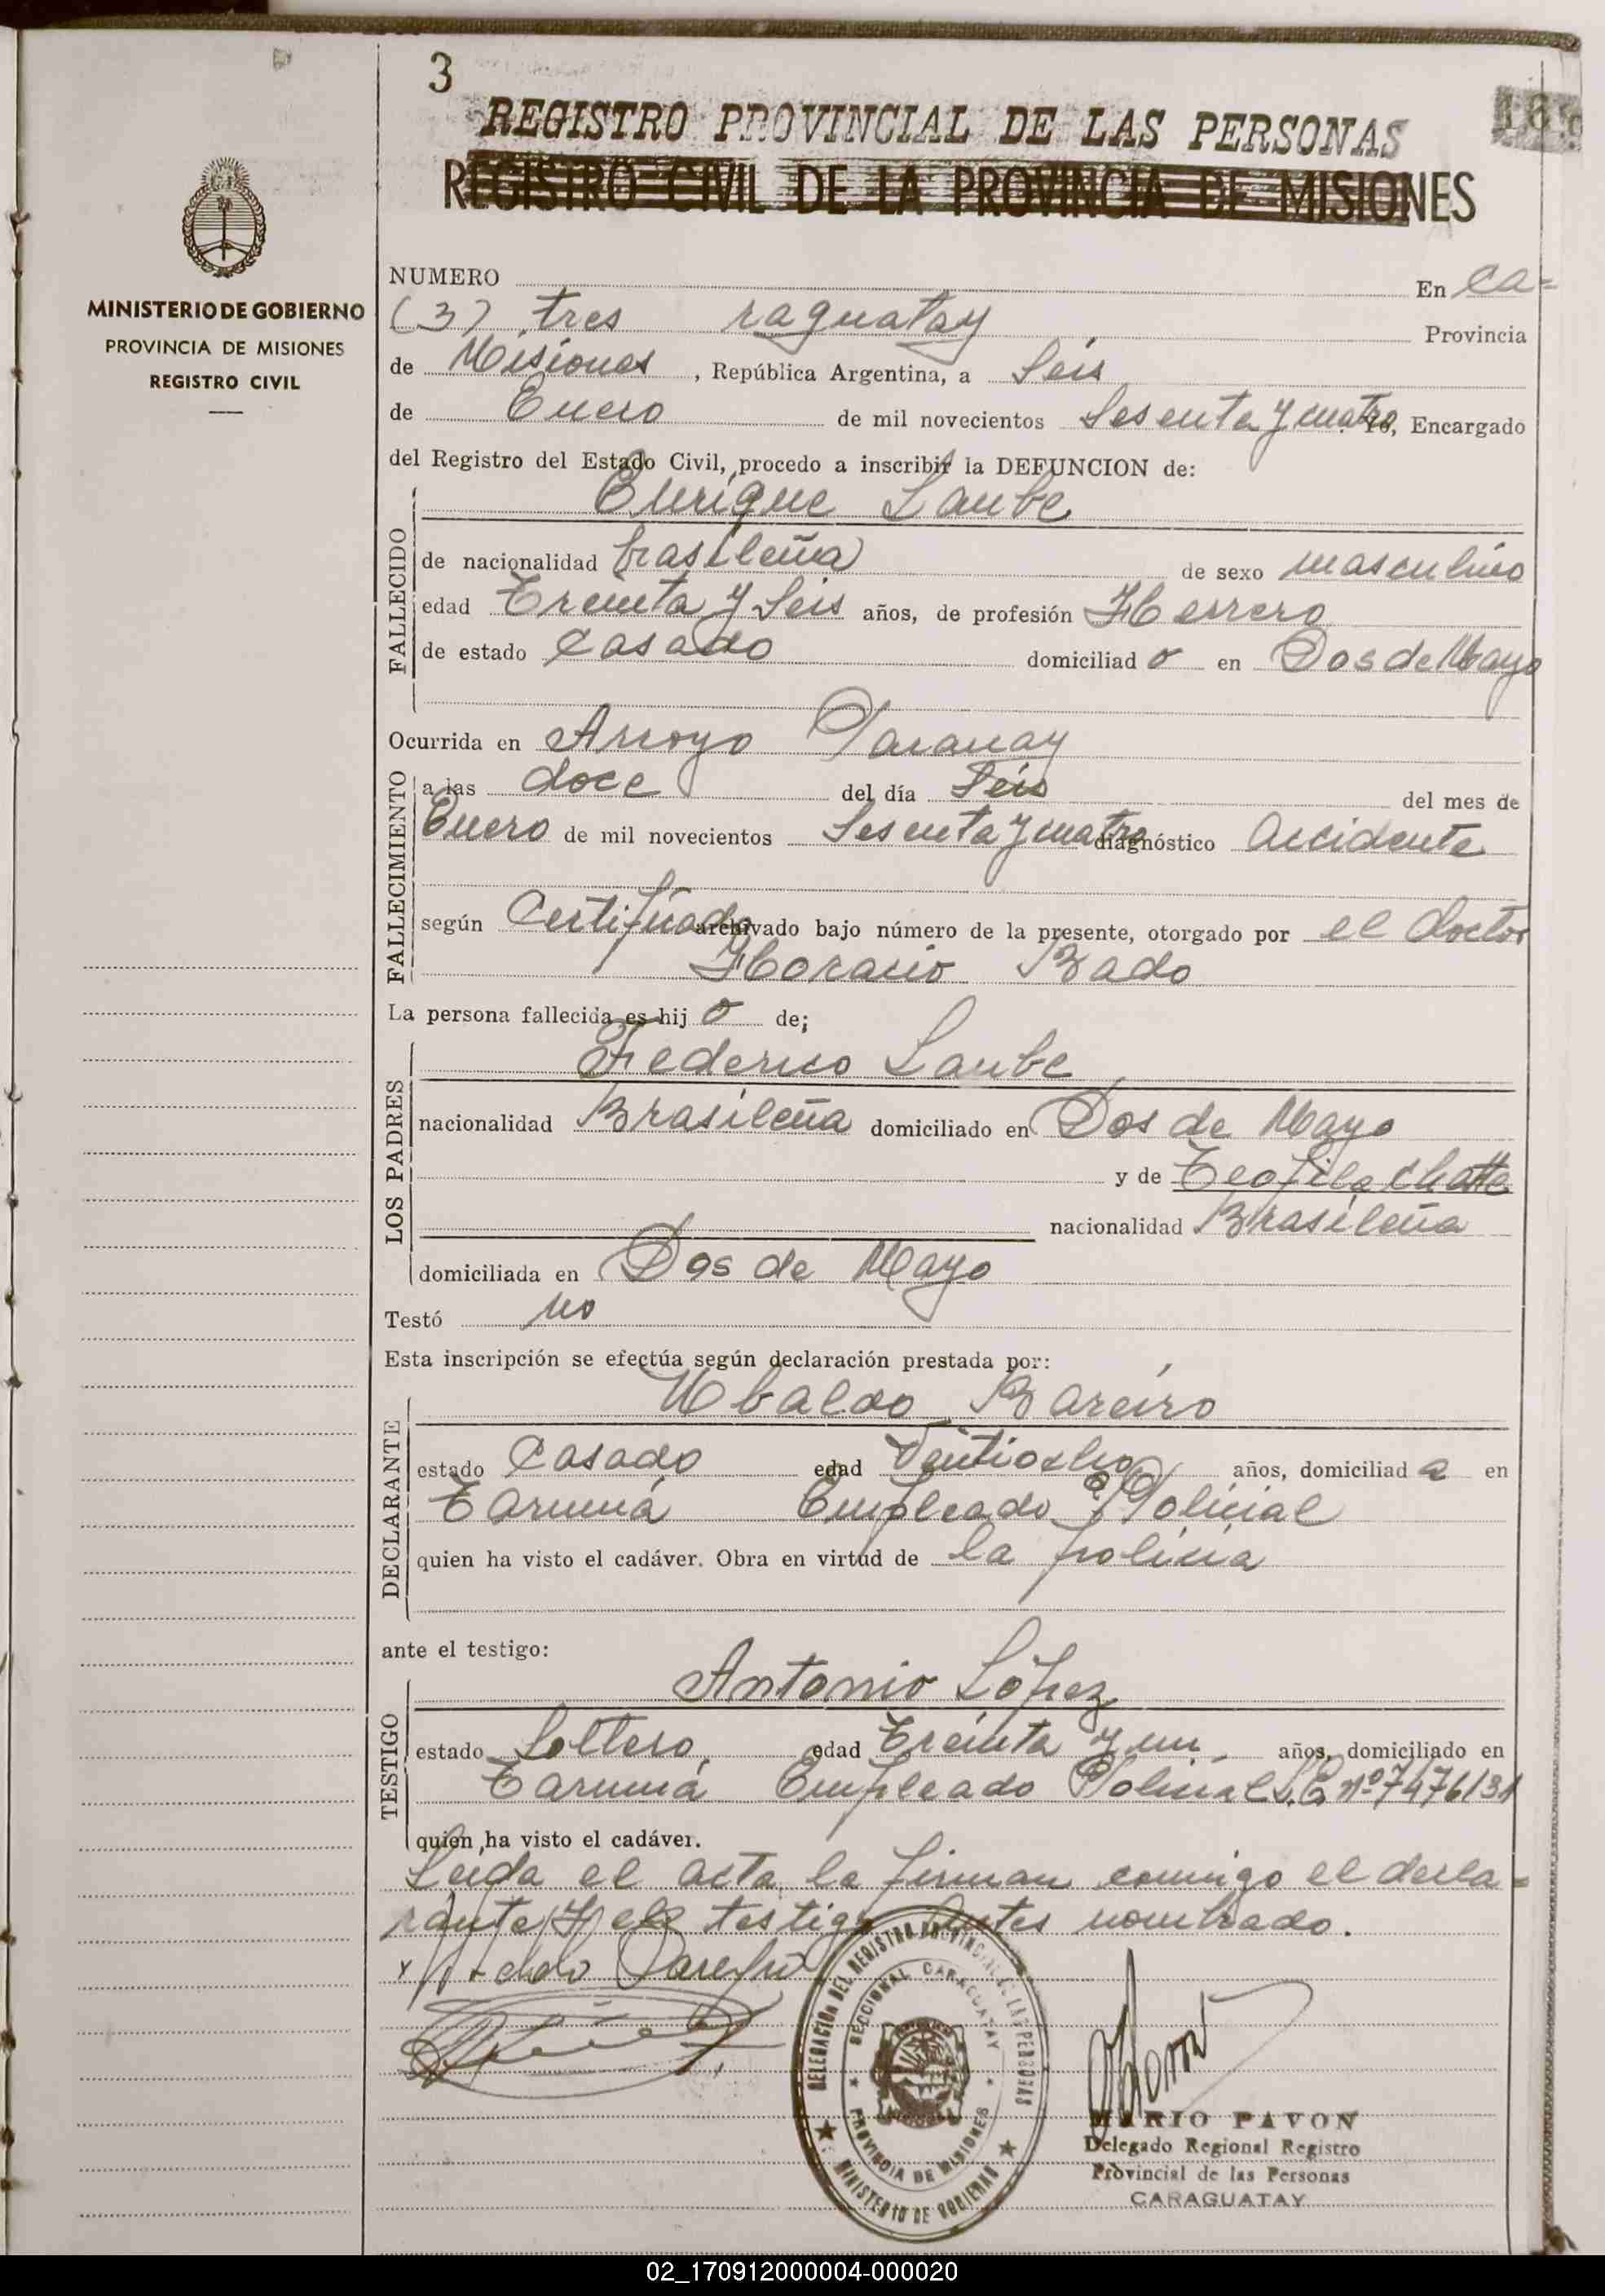 3
REGISTRO PROVINCIAL DE LAS PERSONAS
REGISTRO CIVIL DE LA PROVINCIA DE MISIONES
MINISTERIO DE GOBIERNO
PROVINCIA DE MISIONES
REGISTRO CIVIL
NUMERO En Ca=
(3) tres raguatay Provincia
de Misiones, República Argentina, a Seis
de Enero de mil novecientos Sesenta y cuatro, Encargado
del Registro del Estado Civil, procedo a inscribir la DEFUNCION de:
Enrique Laube
FALLECIDO
de nacionalidad brasileña de sexo masculino
edad Treinta y Seis años, de profesión Herrero
de estado Casado domiciliad o en Dos de Mayo
Ocurrida en Arroyo Paranay
FALLECIMIENTO
a las doce del día Seis del mes de
Enero de mil novecientos Sesenta y cuatro diagnóstico Accidente
según Certificado archivado bajo número de la presente, otorgado por el doctor
Horacio Bado
La persona fallecida es hij o de;
LOS PADRES
Federico Laube
nacionalidad Brasileña domiciliado en Dos de Mayo
y de Teofila Chatte
nacionalidad Brasileña
domiciliada en Dos de Mayo
Testó no
Esta inscripción se efectúa según declaración prestada por:
DECLARANTE
Ubaldo Bareiro
estado Casado edad Veintiocho años, domiciliad a en
Tarumá Empleado Policial
quien ha visto el cadáver. Obra en virtud de la policia
ante el testigo:
TESTIGO
Antonio López
estado Soltero edad Treinta y un años, domiciliado en
Tarumá Empleado Policial nº 7476131
quien ha visto el cadáver.
Leida el acta la firman conmigo el decla=
rante y el testigo antes nombrado.
DELEGACION DEL REGISTRO PROVINCIAL DE LAS PERSONAS
SECCIONAL CARAGUATAY
PROVINCIA DE MISIONES
MINISTERIO DE GOBIERNO
MARIO PAVON
Delegado Regional Registro
Provincial de las Personas
CARAGUATAY
02_170912000004-000020